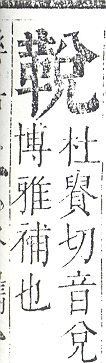 杜切音兌
博雅補也